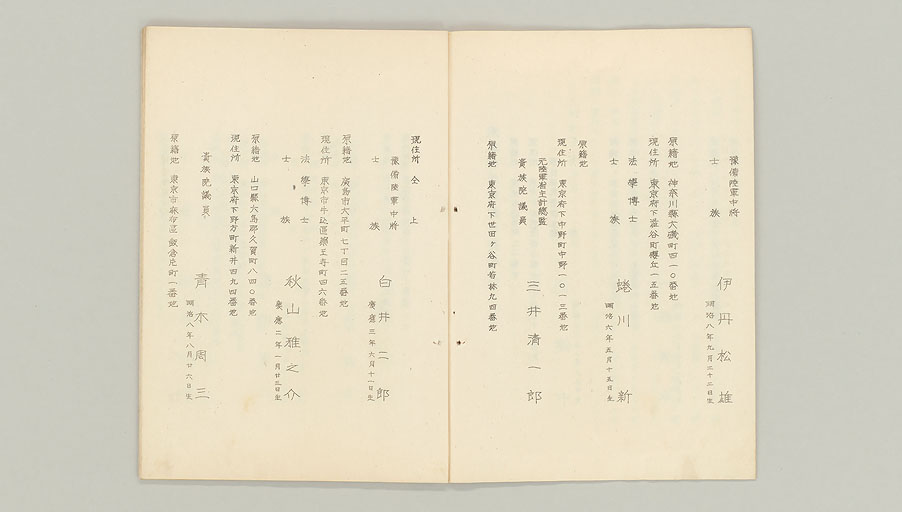 豫備陸軍中將
士族
伊丹松雄
明治八年九月二十二日生
原籍地 神奈川縣大磯町四一〇番地
現住所 東京府下澁谷町櫻丘一五番地
法學博士
士族
蜷川新
明治六年五月十五日生
原籍地
現住所 東京府下中野町中野一〇一三番地
元陸軍省主計總監
貴族院議員
三井清一郎
原籍地 東京府下世田ヶ谷町若林九四番地
現住所 仝上
豫備陸軍中將
士族
白井二郎
慶應三年六月十一日生
原籍地 廣島市大手町七丁目二五番地
現住所 東京市牛込區藥王寺町四六番地
法學博士
士族
秋山雅之介
慶應二年一月廿三日生
原籍地 山口縣大島郡久賀町八四〇番地
現住所 東京府下野方町新井四九四番地
貴族院議員
青木周三
明治八年八月廿六日生
原籍地 東京市麻布區飯倉片町一番地